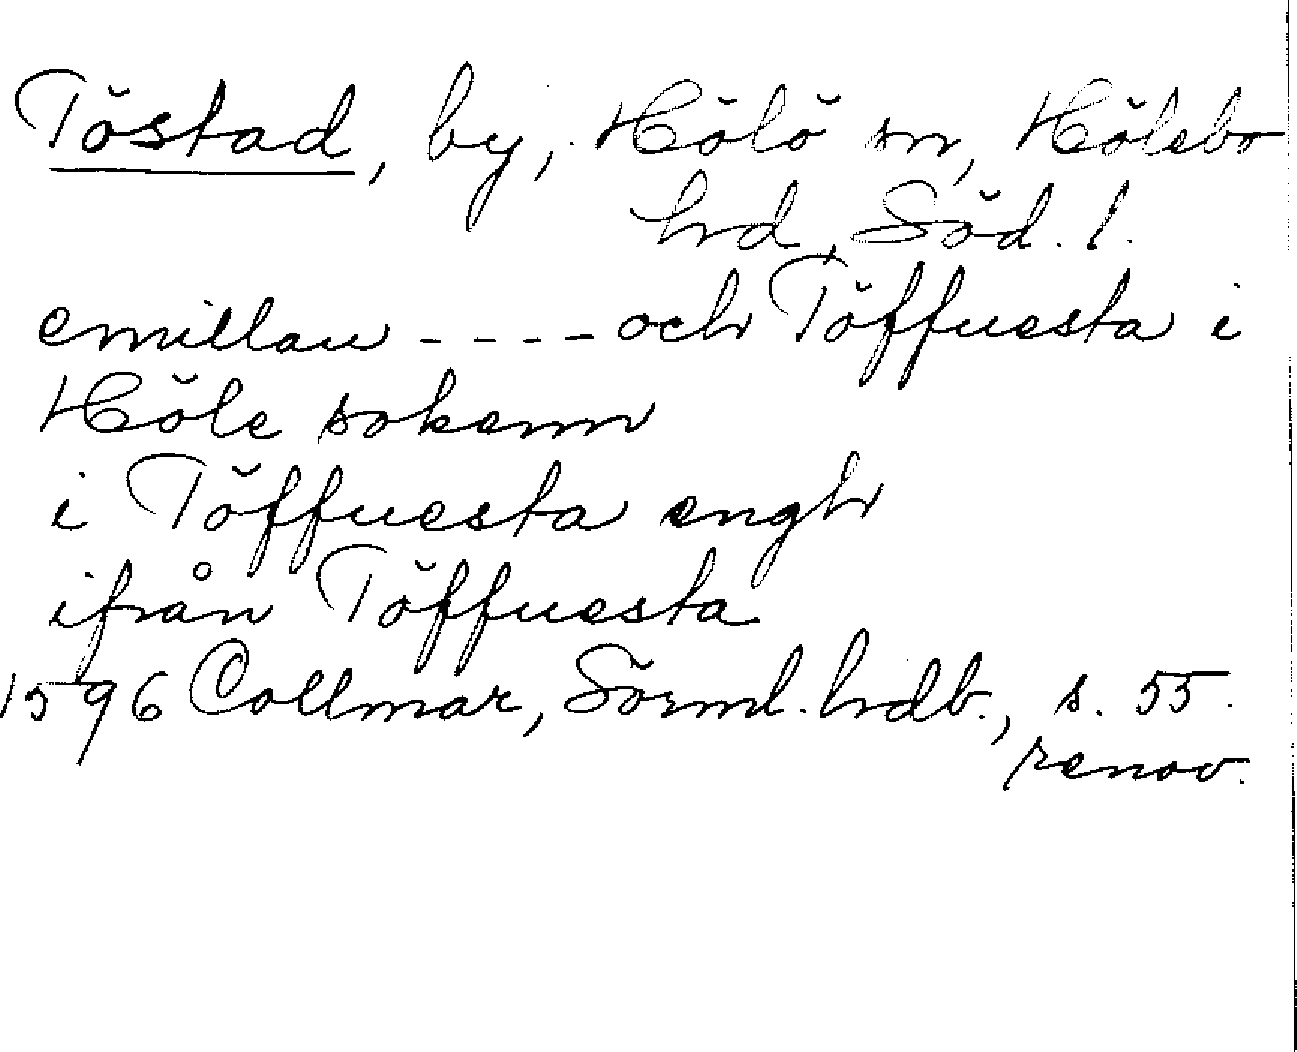 Töstad, by, Hölö sn, Hölebo
hrd, Söd. l.
emillan ---- och Töffuesta i
Höle sokenn
i Töffuesta engh
ifrån Töffuesta
1596 Collmar, Sörml. hrdb., s. 55.
renov.